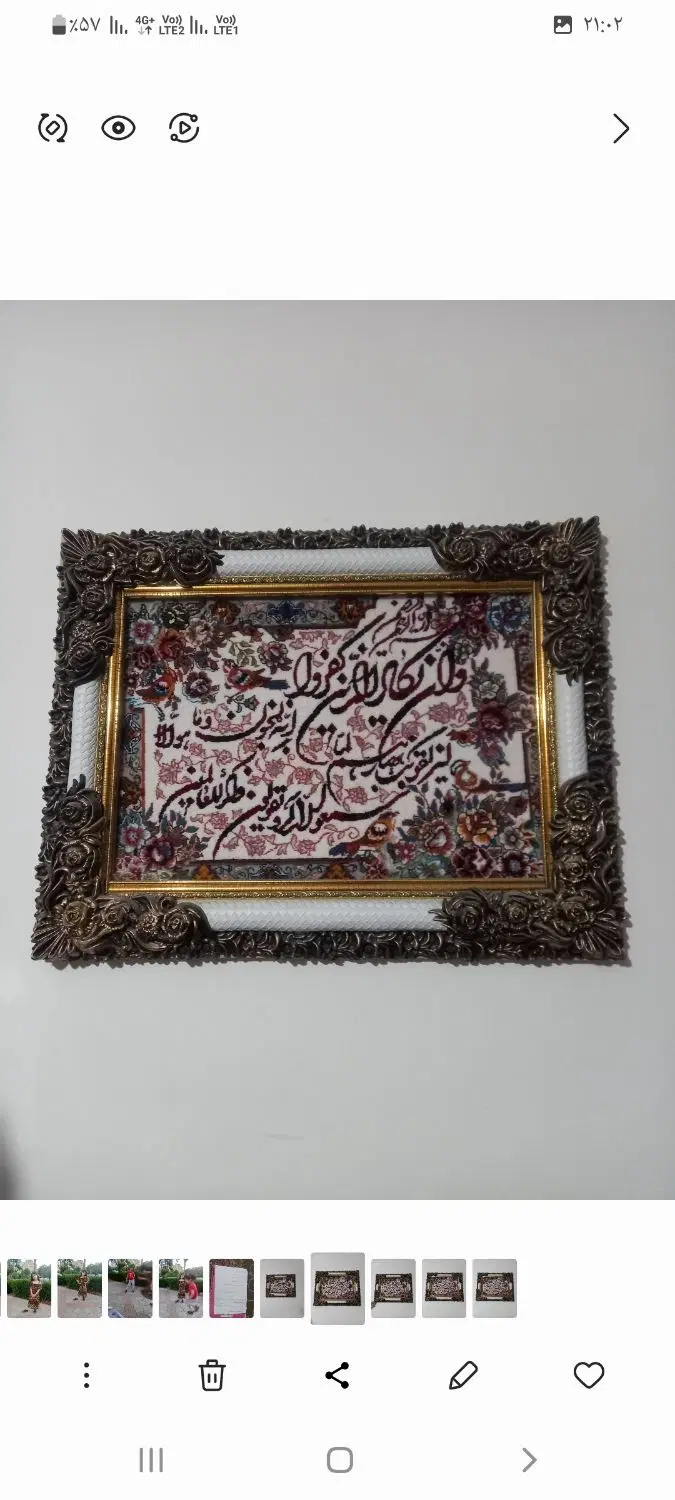 ٪۵۷ 4G+ Vo)) LTE2 Vo)) LTE1 ۲۱:۰۲
وان یکاد الذین کفروا
لیزلقونک بابصارهم لما
سمعوا الذکر و یقولون
انه لمجنون وما هو الا
ذکر للعالمین